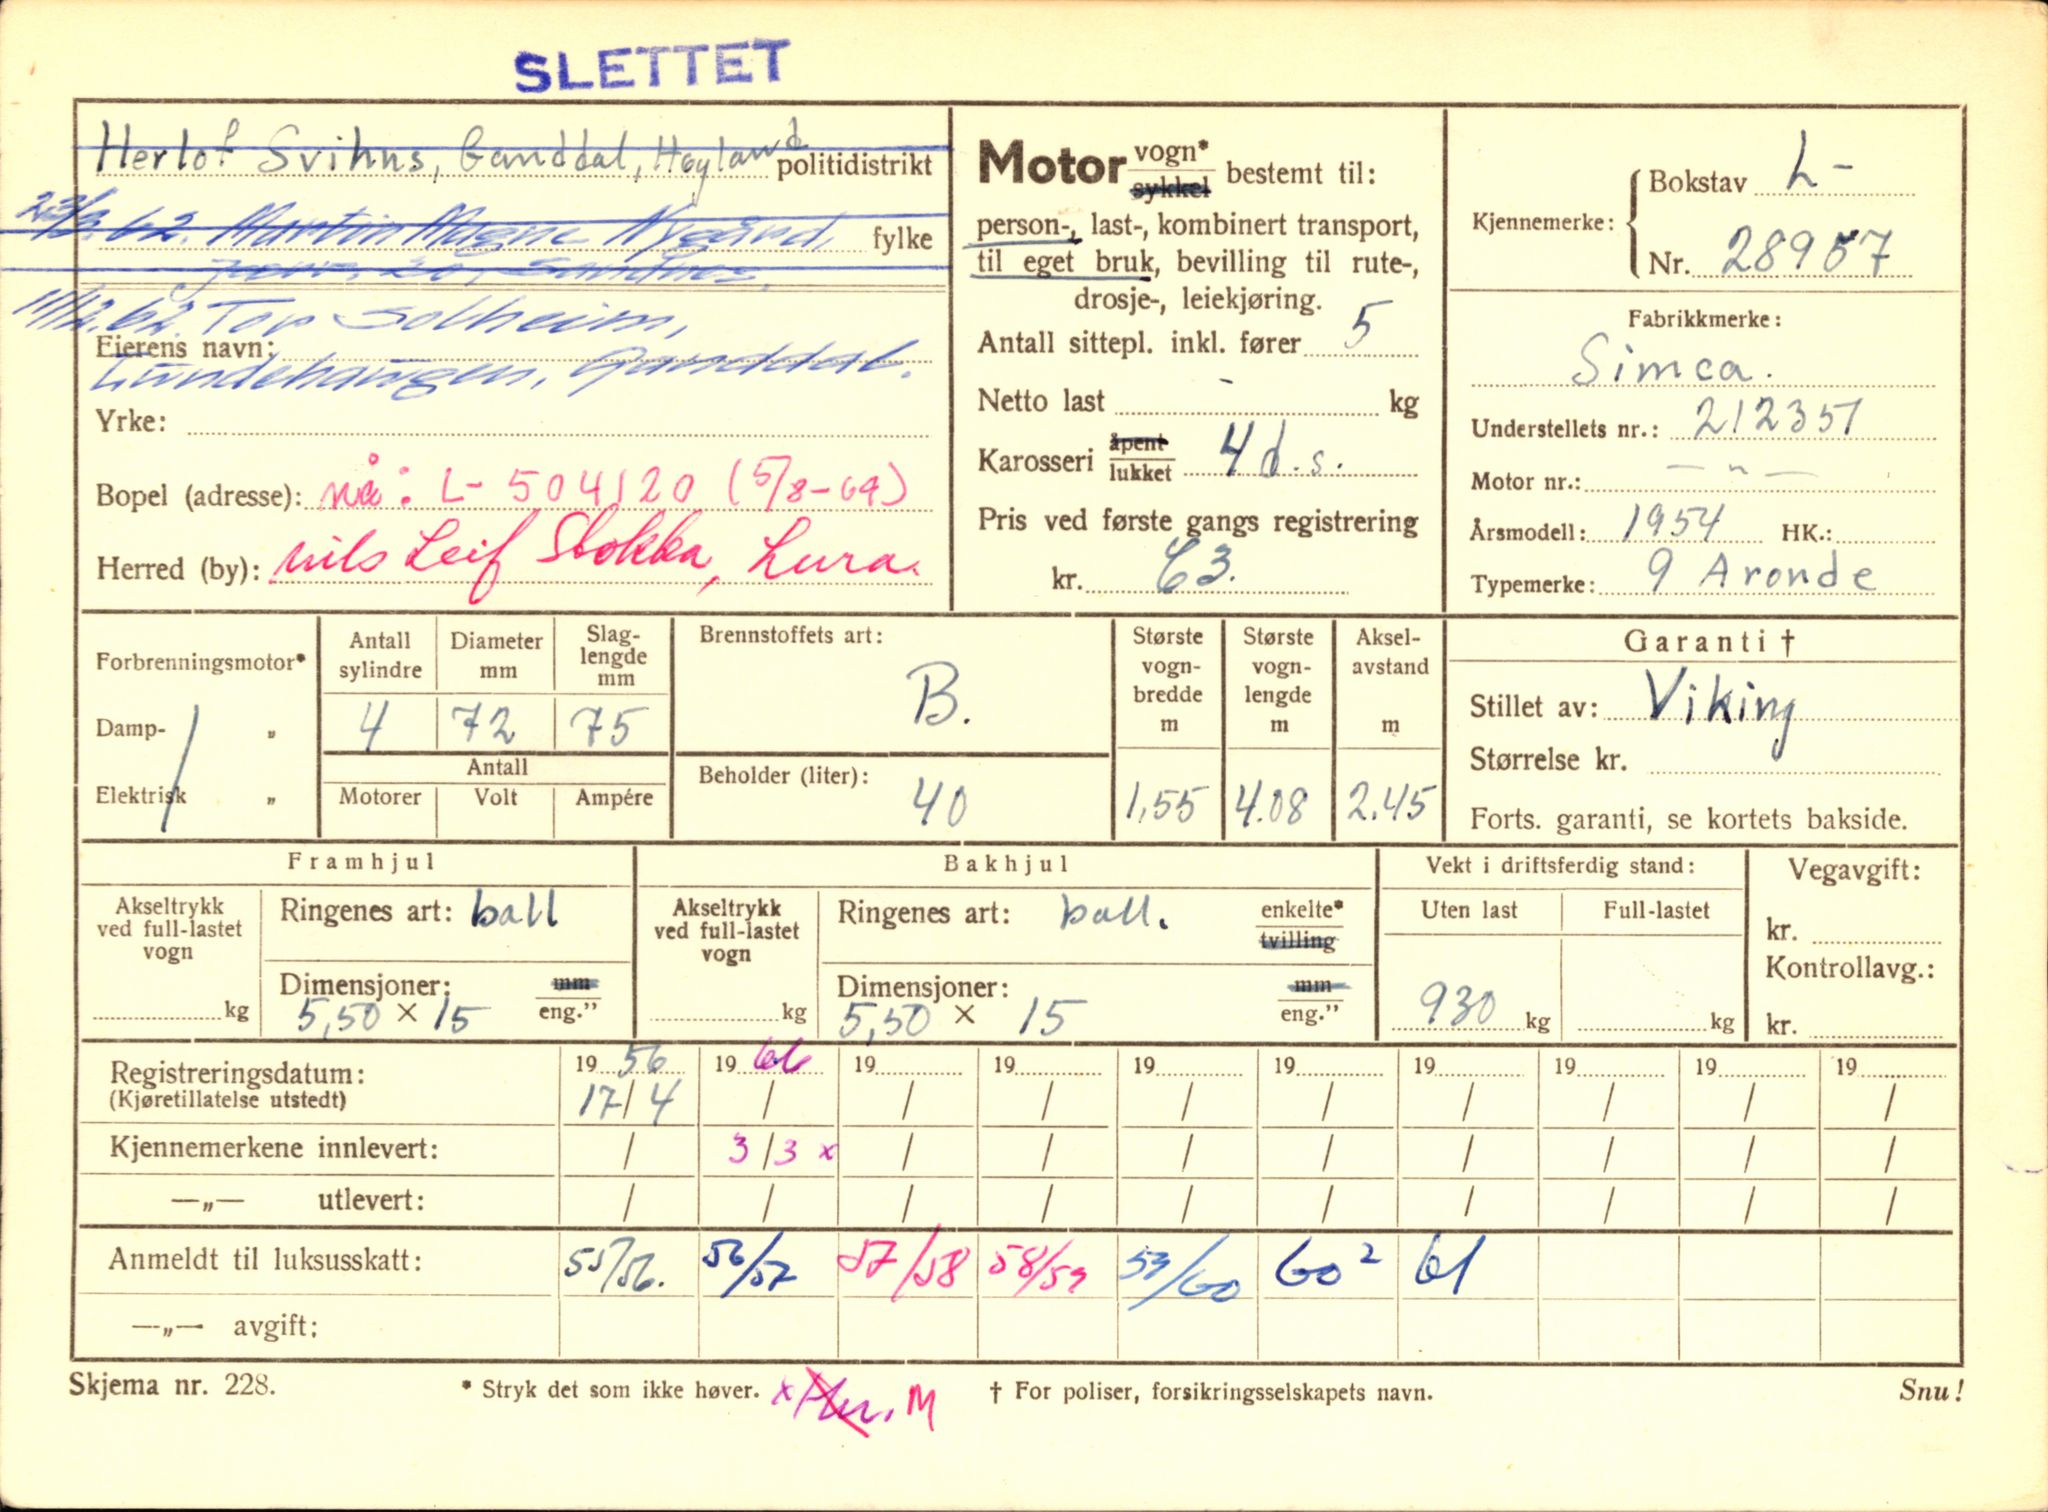 SLETTET
Herlof Svihus, Ganddal, Høyland politidistrikt
23/2.62. Martin Magne Nygård, fylke
20, Sandnes.
11/12.62. Tor Solheim,
Eierens navn:
Lundehaugen, Ganddal.
Yrke:
Bopel (adresse): nå: L-504120 (5/8-69)
Herred (by): Nils Leif Stokka, Lura.
Motor vogn* sykkel bestemt til:
person-, last-, kombinert transport,
til eget bruk, bevilling til rute-,
drosje-, leiekjøring.
Antall sittepl. inkl. fører 5
Netto last - kg
Karosseri åpent lukket 4 d.s.
Pris ved første gangs registrering
kr. C3.
Kjennemerke: Bokstav L-
Nr. 28957
Fabrikkmerke:
Simca.
Understellets nr.: 212351
Motor nr.: — " —
Årsmodell: 1954 HK.:
Typemerke: 9 Aronde
Forbrenningsmotor*
Damp- „
Elektrisk „
Antall sylindre 4
Diameter mm 72
Slag-lengde mm 75
Antall
Motorer Volt Ampére
Brennstoffets art:
B.
Beholder (liter):
40
Største vogn-bredde m 1,55
Største vogn-lengde m 4.08
Aksel-avstand m 2.45
Garanti †
Stillet av: Viking
Størrelse kr.
Forts. garanti, se kortets bakside.
Framhjul
Akseltrykk ved full-lastet vogn kg
Ringenes art: ball
Dimensjoner: mm eng."
5,50 × 15
Bakhjul
Akseltrykk ved full-lastet vogn kg
Ringenes art: ball. enkelte* tvilling
Dimensjoner: mm eng."
5,50 × 15
Vekt i driftsferdig stand:
Uten last Full-lastet
930 kg kg
Vegavgift:
kr.
Kontrollavg.:
kr.
Registreringsdatum: 19 56 19 66 19 19 19 19 19 19 19 19
(Kjøretillatelse utstedt) 17/4 / / / / / / / / /
Kjennemerkene innlevert: / 3/3 x / / / / / / / /
—„— utlevert: / / / / / / / / / /
Anmeldt til luksusskatt: 55/56. 56/57 57/58 58/59 59/60 60² 61
—„— avgift:
Skjema nr. 228. * Stryk det som ikke høver. x M † For poliser, forsikringsselskapets navn. Snu!